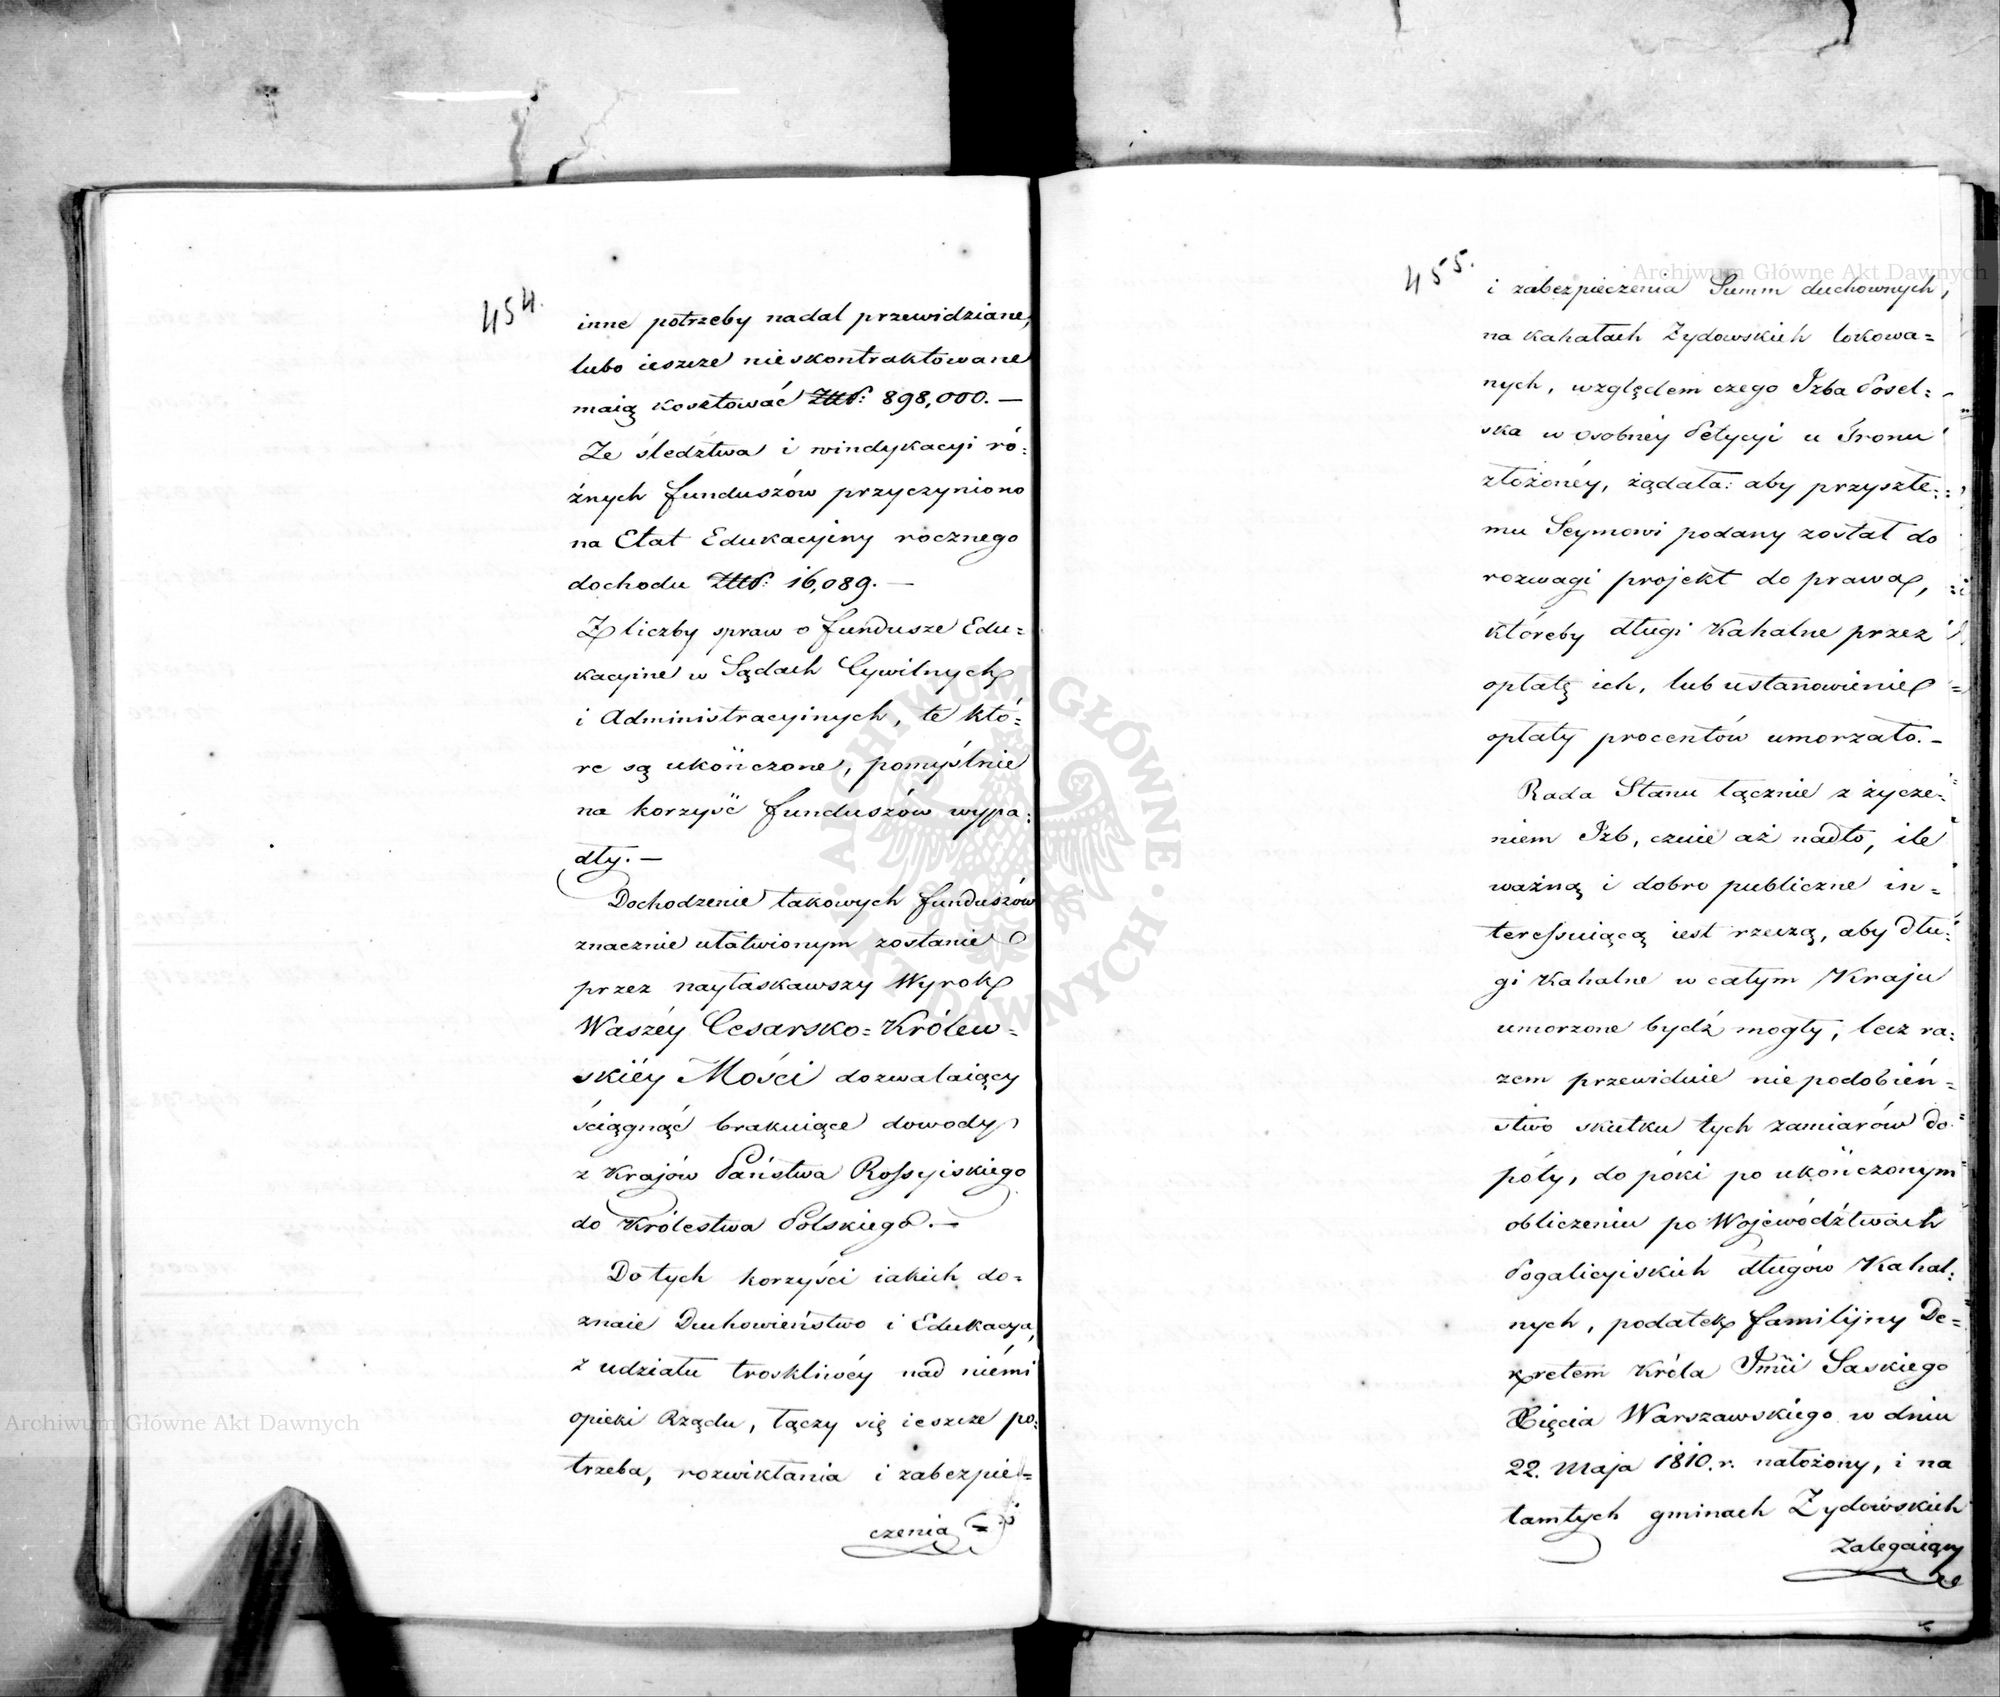 454.
inne potrzeby nadal przewidziane,
lubo ieszcze nieskontraktowane
maią kosztować Złłp: 898,000. —
Ze śledztwa i windykacyi ró=
żnych funduszów przyczyniono
na Etat Edukacyiny rocznego
dochodu Złłp: 16,089. —
Z liczby spraw o fundusze Edu=
kacyine w Sądach Cywilnych
i Administracyinych, te któ=
re są ukończone, pomyślnie
na korzyść funduszów wypa=
dły. —
Dochodzenie takowych funduszów
znacznie ułatwionym zostanie
przez nayłaskawszy Wyrok
Waszéy Cesarsko=Królew=
skiéy Mości dozwalaiący
ściągnąć brakuiące dowody
z Krajów Państwa Rossyiskiego
do Królestwa Polskiego. —
Do tych korzyści iakich do=
znaie Duchowieństwo i Edukacya,
z udziału troskliwéy nad niémi
opieki Rządu, łączy się ieszcze po=
trzeba, rozwikłania i zabezpie=
czenia
455.
i zabezpieczenia Summ duchownych,
na kahałach Żydowskich lokowa=
nych, względem czego Izba Posel=
ska w osobnéy Petycyi u Tronu
złożonéy, żądała: aby przyszłe=
mu Seymowi podany został do
rozwagi projekt do prawa,
któreby długi Kahalne przez
opłatę ich, lub ustanowienie
opłaty procentów umorzało. —
Rada Stanu łącznie z życze=
niem Izb, czuie aż nadto, ile
ważną i dobro publiczne in=
teressuiącą iest rzeczą, aby dłu=
gi Kahalne w całym Kraju
umorzone bydź mogły, lecz ra=
zem przewiduie niepodobień=
stwo skutku tych zamiarów do=
póty, dopóki po ukończonym
obliczeniu po Województwach
Pogalicyiskich długów Kahal=
nych, podatek familijny De=
kretem Króla Jmći Saskiego
Xięcia Warszawskiego w dniu
22. Maja 1810. r. nałożony, i na
tamtych gminach Żydowskich
zalegaiący
Archiwum Główne Akt Dawnych
Archiwum Główne Akt Dawnych
ARCHIWUM GŁÓWNE AKT DAWNYCH